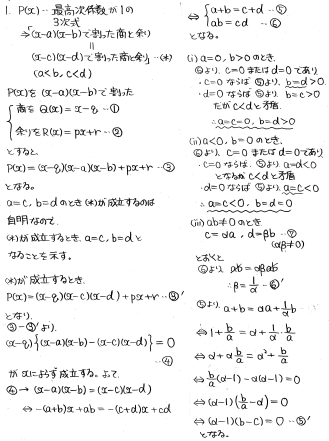 1. P(x)… 最高次係数が1の
3次式
→「(x-a)(x-b)で割った商と余り
||
(x-c)(x-d)で割った商と余り …(*)
(a<b, c<d)
P(x)を (x-a)(x-b)で割った
{商を Q(x)=x-q …①
余りを R(x)=px+r …②
とすると
P(x)=(x-q)(x-a)(x-b)+px+r …③
となる。
a=c, b=dのとき(*)が成立するのは
自明なので、
(*)が成立するとき、a=c, b=dと
なることを示す。
(*)が成立するとき、
P(x)=(x-q)(x-c)(x-d)+px+r …③'
となり、
③-③'より、
(x-q){(x-a)(x-b)-(x-c)(x-d)}=0
…④
がxによらず成立する。よって、
④→(x-a)(x-b)=(x-c)(x-d)
⇔ -(a+b)x+ab=-(c+d)x+cd
⇔ {a+b=c+d …⑤
ab=cd …⑥
となる。
(i) a=0, b>0のとき.
⑥より、c=0またはd=0であり
・c=0ならば ⑤より b=d>0
・d=0ならば ⑤より b=c>0
だがc<dと矛盾.
∴a=c=0, b=d>0
(ii) a<0, b=0のとき.
⑥より、c=0またはd=0であり
・c=0ならば、⑤より a=d<0
となるがc<dと矛盾
・d=0ならば ⑤より、a=c<0
∴a=c<0, b=d=0
(iii) ab≠0のとき.
c=αa, d=βb …⑦
(αβ≠0)
とおくと
⑥より、ab=αβab
∴β=1/α …⑥'
⑤より、a+b=αa+1/α b
⇔1+b/a=α+1/α・b/a
⇔α+α b/a=α²+b/a
⇔b/a(α-1)-α(α-1)=0
⇔(α-1)(b/a-α)=0
⇔(α-1)(b-c)=0 …⑤'
となる。